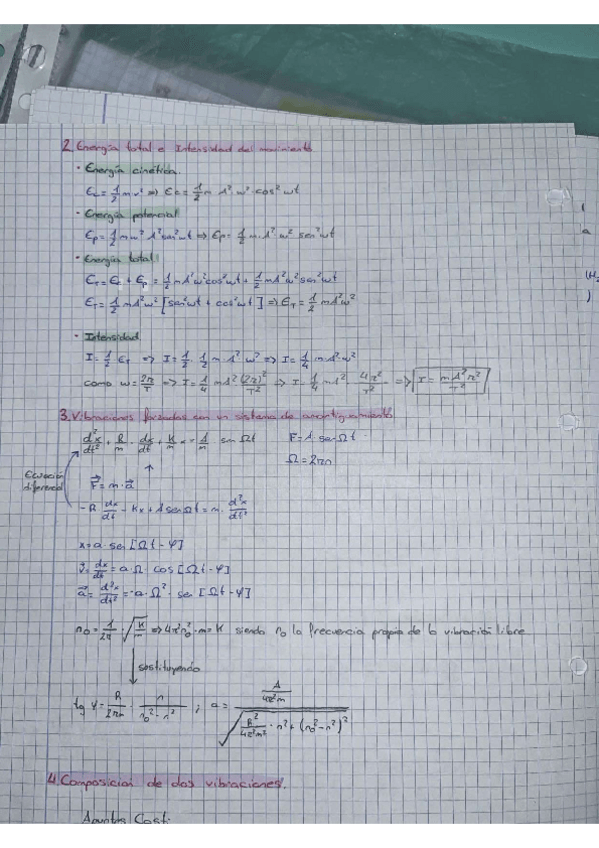 2. Energía total e Intensidad del movimiento
· Energía cinética.
Ec = 1/2 m v² => Ec = 1/2 m A² · ω² · cos² ωt
· Energía potencial
Ep = 1/2 m ω² A² sen² ωt => Ep = 1/2 m · A² ω² sen² ωt
· Energía total:
ET = Ec + Ep = 1/2 m A² ω² cos² ωt + 1/2 m A² ω² sen² ωt
ET = 1/2 m A² ω² [sen² ωt + cos² ωt] => ET = 1/2 m A² ω²
· Intensidad
I = 1/2 ET => I = 1/2 · 1/2 m A² ω² => I = 1/4 m A² ω²
como ω = 2π/T => I = 1/4 m A² (2π)²/T² => I = 1/4 m A² · 4π²/T² => I = m A² π²/T²
3. Vibraciones forzadas con un sistema de amortiguamiento
d²x/dt² + R/m · dx/dt + K/m x = A/m sen Ωt F = A · sen Ωt
Ω = 2πn
Ecuación
diferencial
F = m · a
-R dx/dt - Kx + A sen Ωt = m · d²x/dt²
x = a · sen [Ωt - φ]
v = dx/dt = a · Ω · cos [Ωt - φ]
a = d²x/dt² = -a · Ω² · sen [Ωt - φ]
n₀ = 1/2π · √(K/m) => 4π² n₀² · m = K siendo n₀ la frecuencia propia de la vibración libre
sustituyendo
tg φ = R/2πm · n/(n₀² - n²) ; a = (A/4π²m) / √(R²/4π²m² · n² + (n₀² - n²)²)
4. Composición de dos vibraciones.
Apuntes Costi
(H₂
)